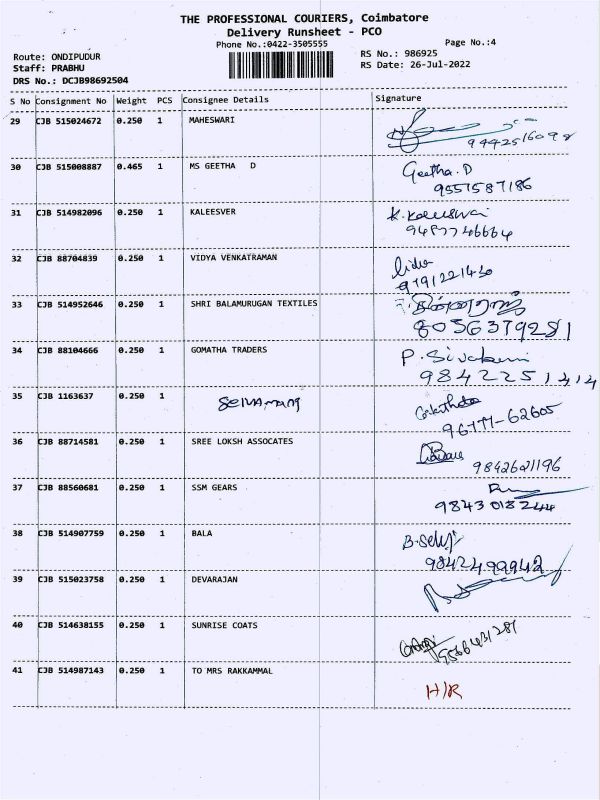 THE PROFESSIONAL COURIERS, Coimbatore
Delivery Runsheet - PCO
Phone No.:0422-3505555
Page No.:4
Route: ONDIPUDUR
RS No.: 986925
Staff: PRABHU
RS Date: 26-Jul-2022
DRS No.: DCJB98692504
S No Consignment No Weight PCS Consignee Details Signature
29 CJB 515024672 0.250 1 MAHESWARI
9442516098
30 CJB 515008887 0.465 1 MS GEETHA D Geetha.D
9551587186
31 CJB 514982096 0.250 1 KALEESVER
9487746664
32 CJB 88704839 0.250 1 VIDYA VENKATRAMAN
9791221430
33 CJB 514952646 0.250 1 SHRI BALAMURUGAN TEXTILES
8056379281
34 CJB 88104666 0.250 1 GOMATHA TRADERS
9842251414
35 CJB 1163637 0.250 1
96777-62605
36 CJB 88714581 0.250 1 SREE LOKSH ASSOCATES
9842621196
37 CJB 88560681 0.250 1 SSM GEARS
9843018244
38 CJB 514907759 0.250 1 BALA
9842499942
39 CJB 515023758 0.250 1 DEVARAJAN
40 CJB 514638155 0.250 1 SUNRISE COATS
9566431281
41 CJB 514987143 0.250 1 TO MRS RAKKAMMAL
H/R